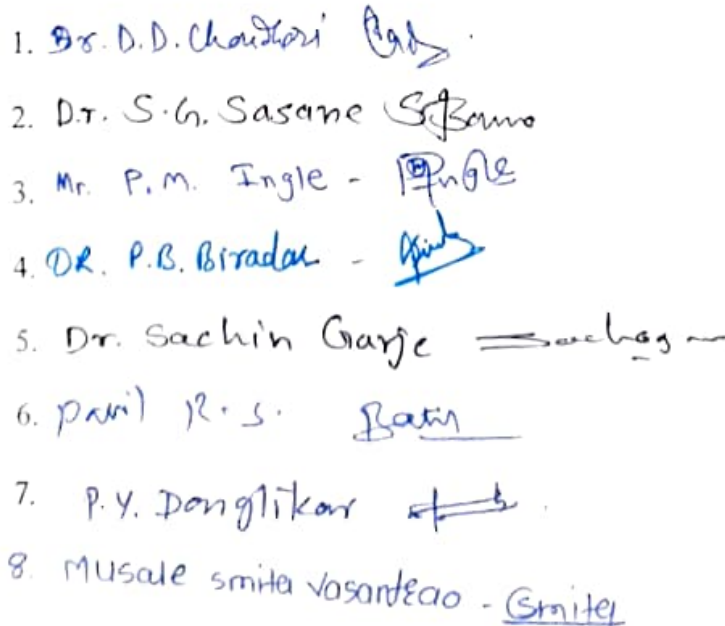 1. Dr. D.D. Choudhari
2. Dr. S.G. Sasane
3. Mr. P.M. Ingle - Ingle
4. DR. P.B. Biradar -
5. Dr. Sachin Garje
6. Patil R.S. Patil
7. P.Y. Donglikar
8. Musale smita vasantrao - Smita